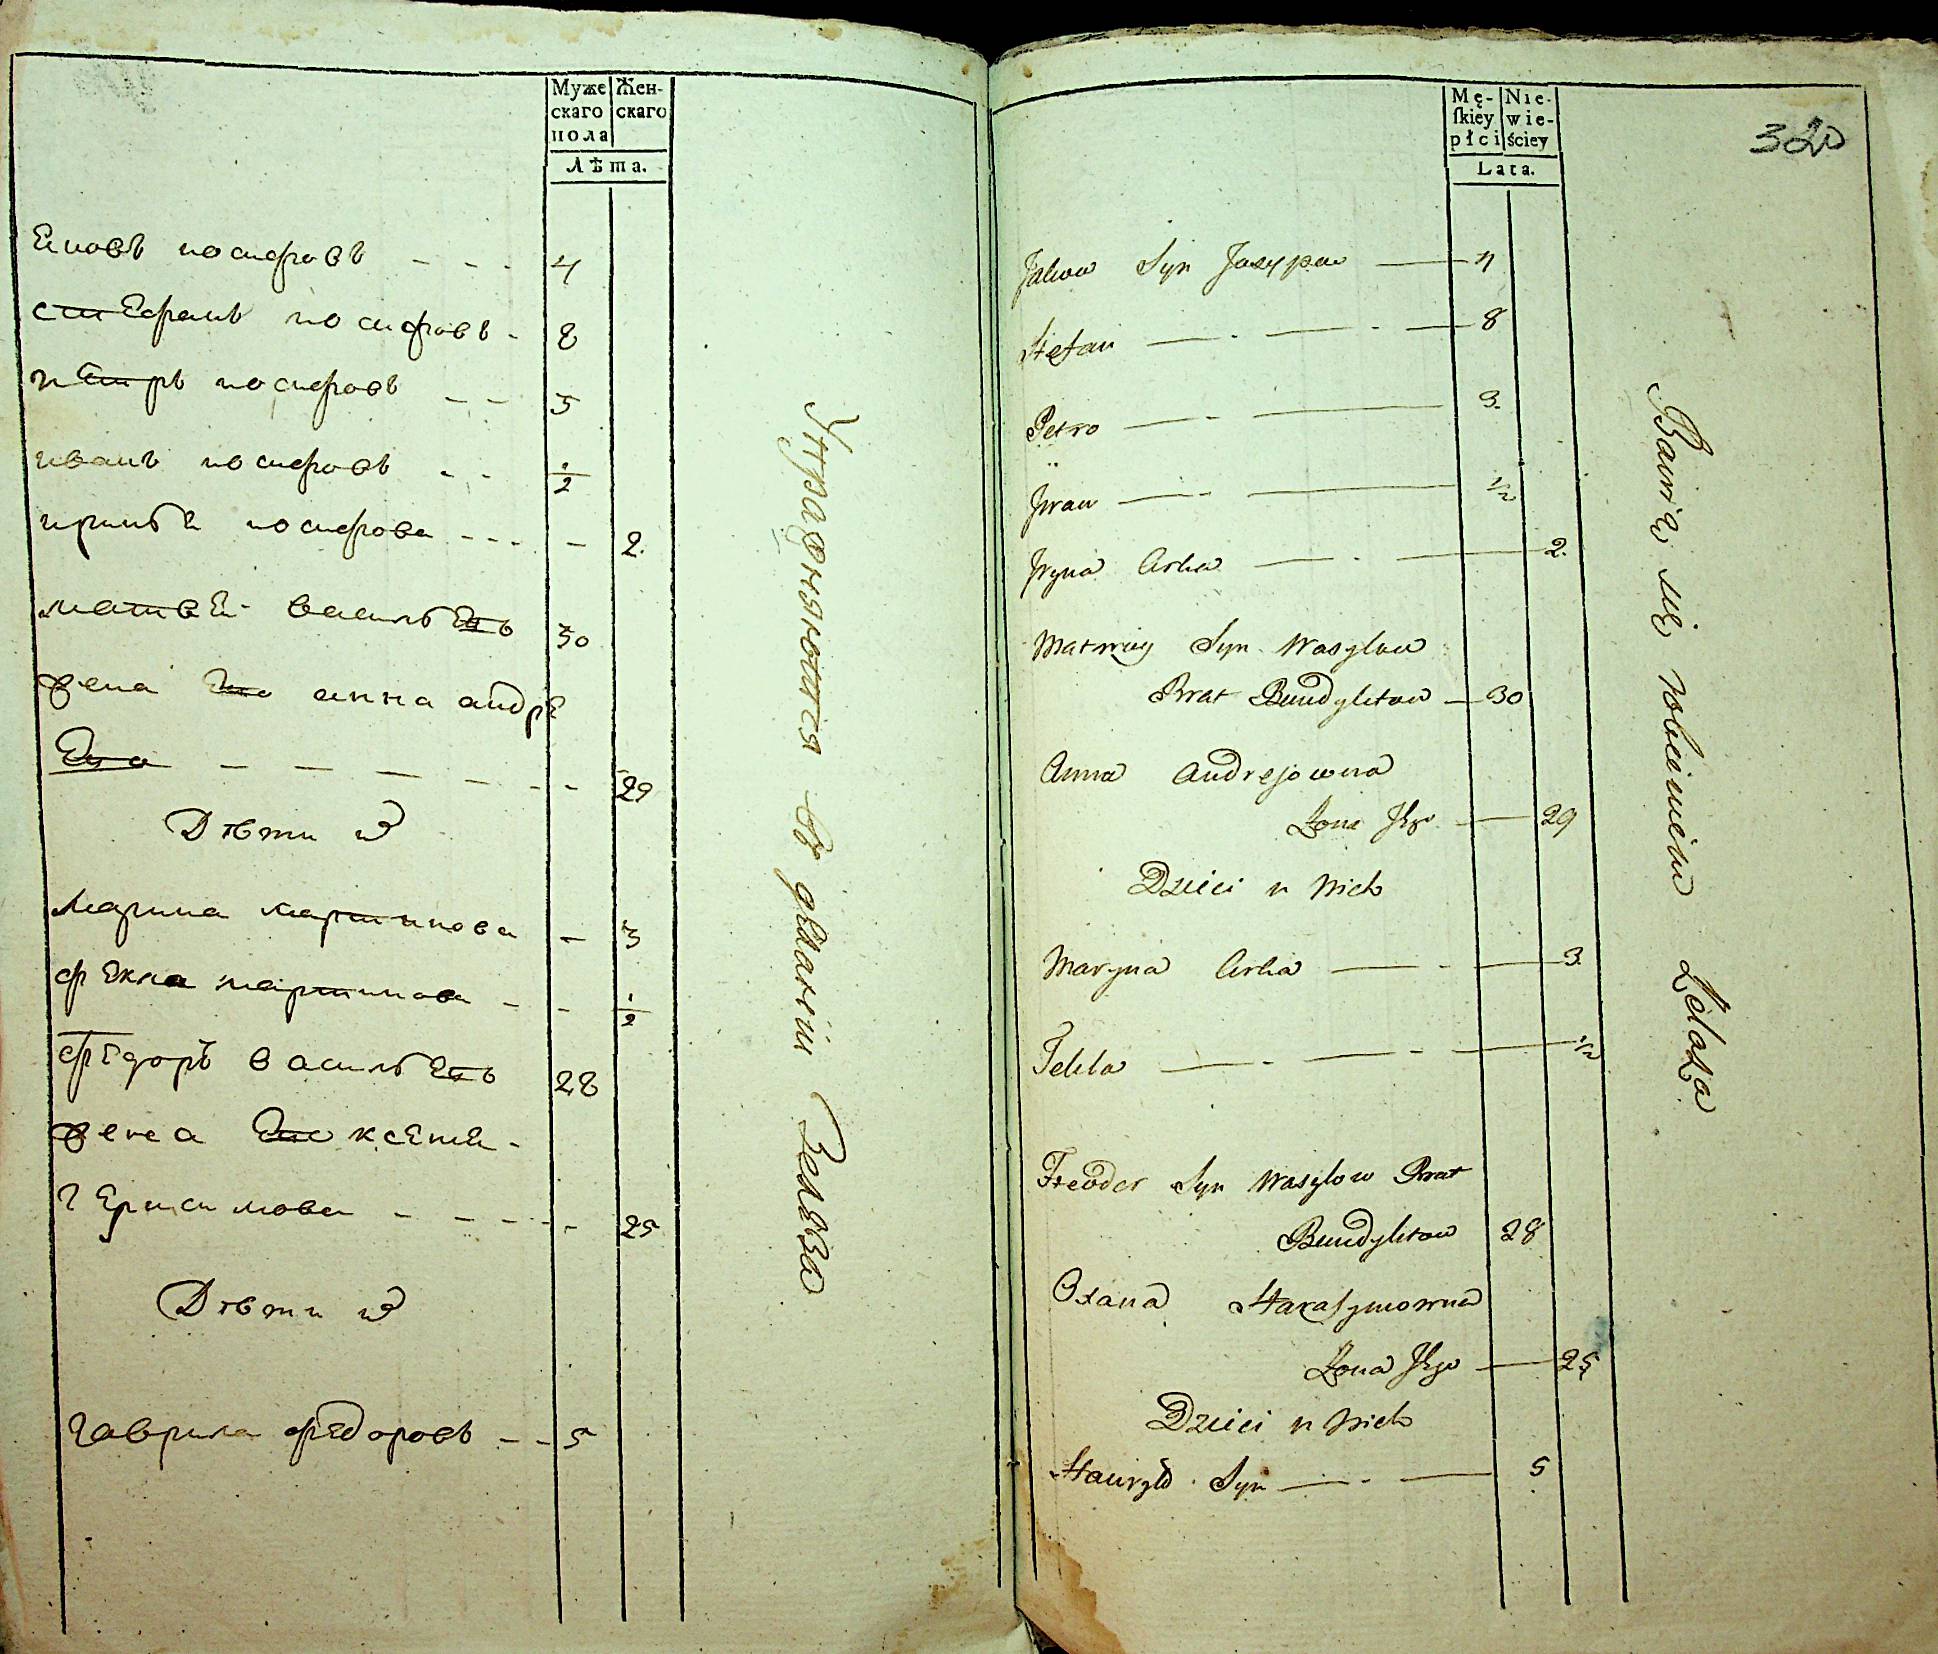 Муже
скаго
пола
Жен-
скаго
Лѣта.
Яковъ иосифовъ - - - 4
стефанъ иосифовъ - 8
петръ иосифовъ - - 3
иванъ иосифовъ - - 1/2
ириня иосифова - - - - 2.
матвей васильевъ 30
жена его анна андре
ева - - - - - - - 29
Дѣти их
марина мартинова - 3
фекла мартинова - - 1/2
федоръ васильевъ 28
жена его ксения
герасимова - - - - - 25
Дѣти их
гаврила федоровъ - - 5
Упражняются въ деланіи Зелеза
Mę-
ſkiey
płci
Nie-
wie-
ściey
Lata.
320
Jakow Syn Jozypow — 4
Stefan — - — - — 8
Petro — - — 3.
Jwan — - — 1/2
Jryna Corka — - — 2.
Matwiy Syn Wasylow
Brat Bundylitow — 30
Anna Andrejowna
Żona Jego — 29
Dzieci z Nich
Maryna Corka — - — 3.
Tekla — - — - — 1/2
Fteodor Syn Wasylow Brat
Bundylitow 28
Oxana Harasymowna
Żona Jego — 25
Dzieci z Nich
Hawryło Syn — - — 5
Bawie się robieniem Zelaza